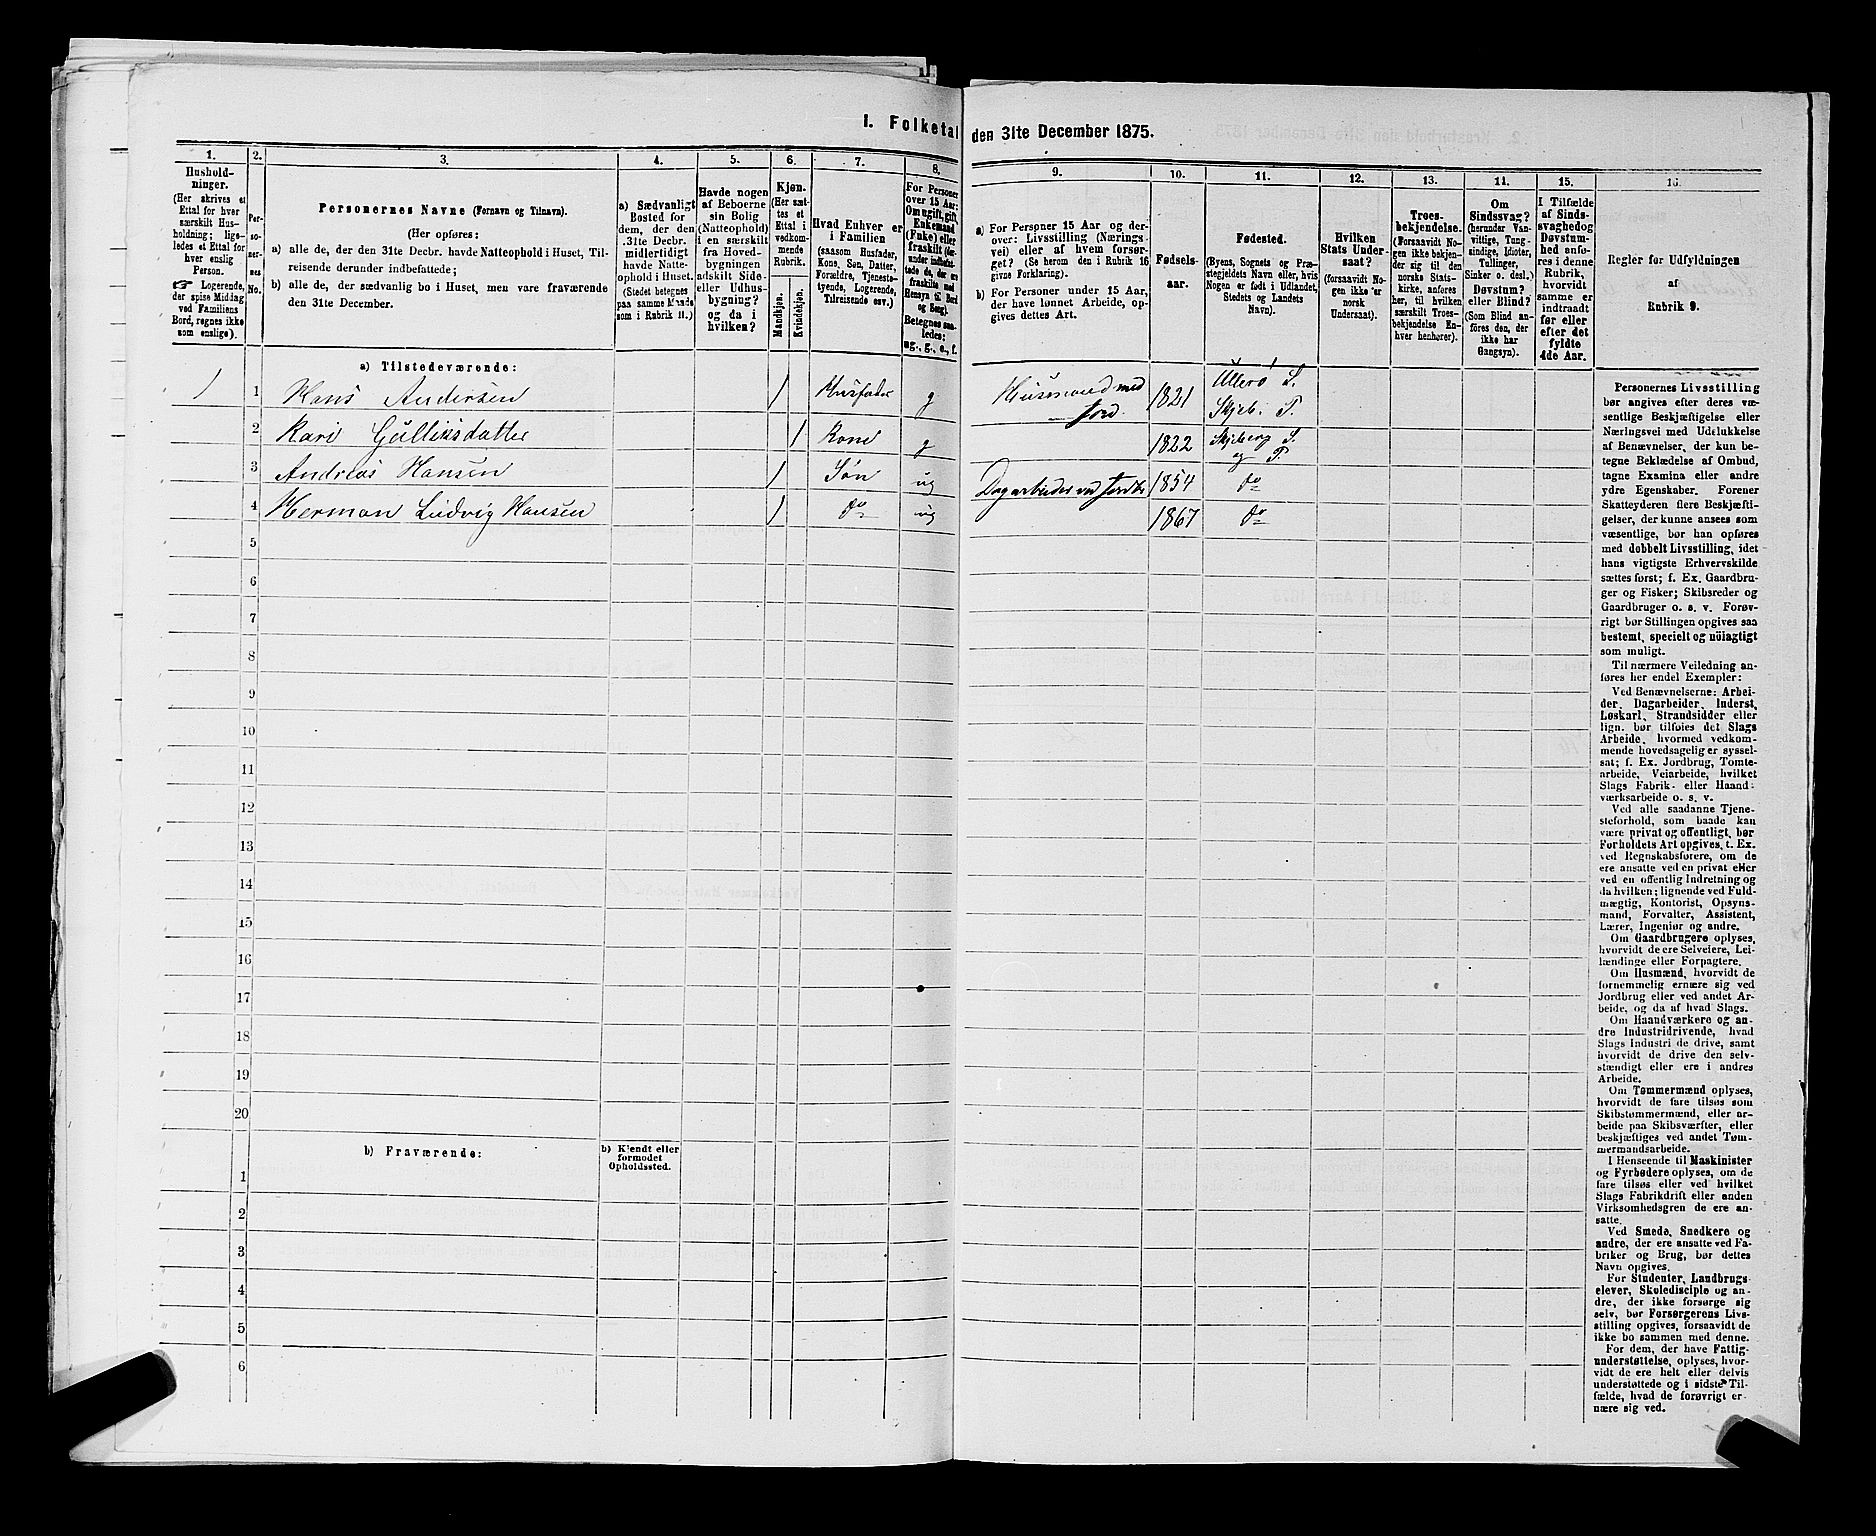 I. Folketal den 31te December 1875.
1.
Hushold-
ninger.
(Her skrives et
Ettal for hver
særskilt Hus-
holdning; lige-
ledes et Ettal for
hver enslig
Person.
☞ Logerende,
der spise Middag
ved Familiens
Bord, regnes ikke
som enslige).
2.
Per-
so-
ner-
nes
No.
3.
Personernes Navne (Fornavn og Tilnavn).
(Her opføres:
a) alle de, der den 31te Decbr. havde Natteophold i Huset, Til-
reisende derunder indbefattede;
b) alle de, der sædvanlig bo i Huset, men vare fraværende
den 31te December.
4.
a) Sædvanligt
Bosted for
dem, der den
31te Decbr.
midlertidigt
havde Natte-
ophold i Huset.
(Stedet betegnes
paa samme Maade
som i Rubrik 11.)
5.
Havde nogen
af Beboerne
sin Bolig
(Natteophold)
i en særskilt
fra Hoved-
bygningen
adskilt Side-
eller Udhus-
bygning?
og da i
hvilken?
6.
Kjøn.
(Her sæt-
tes et
Ettal i
vedkom-
mende
Rubrik.
Mandkjøn.
Kvindekjøn.
7.
Hvad Enhver er
i Familien
(saasom Husfader,
Kone, Søn, Datter,
Forældre, Tjeneste-
tyende, Logerende,
Tilreisende osv.)
8.
For Personer
over 15 Aar:
Om ugift, gift,
Enkemand
(Enke) eller
fraskilt (der-
under indbefat-
tede de, der ere
fraskilte med
Hensyn til Bord
og Seng).
Betegnes saa-
ledes:
ug., g., e., f.
9.
a) For Personer 15 Aar og der-
over: Livsstilling (Nærings-
vei) eller af hvem forsør-
get? (Se herom den i Rubrik 16
givne Forklaring).
b) For Personer under 15 Aar,
der have lønnet Arbeide, op-
gives dettes Art.
10.
Fødsels-
aar.
11.
Fødested.
(Byens, Sognets og Præ-
stegjeldets Navn eller, hvis
Nogen er født i Udlandet,
Stedets og Landets
Navn).
12.
Hvilken
Stats Under-
saat?
(forsaavidt No-
gen ikke er
norsk
Undersaat).
13.
Troes-
bekjendelse.
(Forsaavidt No-
gen ikke bekjen-
der sig til den
norske Stats-
kirke, anføres
her, til hvilken
særskilt Troes-
bekjendelse En-
hver henhører).
14.
Om
Sindssvag?
(herunder Van-
vittige, Tung-
sindige, Idioter,
Tullinger,
Sinker o. desl.)
Døvstum?
eller Blind?
(Som Blind an-
føres den, der
ikke har
Gangsyn).
15.
I Tilfælde
af Sinds-
svaghed og
Døvstum-
hed anfø-
res i denne
Rubrik,
hvorvidt
samme er
indtraadt
før eller
efter det
fyldte
4de Aar.
16.
Regler for Udfyldningen
af
Rubrik 9.
a) Tilstedeværende:
1 1 Hans Andersen 1 Husfader g Husmand med Jord. 1821 Ullerø S. Skjeb. P.
2 Kari Gullixsdatter 1 Kone g 1822 Skjeberg S. og P.
3 Andreas Hansen 1 Søn ug Dagarbeider ved Jordbr 1854 do
4 Herman Ludvig Hansen 1 do ug 1867 do
5
6
7
8
9
10
11
12
13
14
15
16
17
18
19
20
b) Fraværende:
b) Kjendt eller
formodet
Opholdssted.
1
2
3
4
5
6
Personernes Livsstilling
bør angives efter deres væ-
sentlige Beskjæftigelse eller
Næringsvei med Udelukkelse
af Benævnelser, der kun be-
tegne Beklædelse af Ombud,
tagne Examina eller andre
ydre Egenskaber. Forener
Skatteyderen flere Beskjæfti-
gelser, der kunne ansees som
væsentlige, bør han opføres
med dobbelt Livsstilling, idet
hans vigtigste Erhvervskilde
sættes først; f. Ex. Gaardbru-
ger og Fisker; Skibsreder og
Gaardbruger o. s. v. Forøv-
rigt bør Stillingen opgives saa
bestemt, specielt og nøiagtigt
som muligt.
Til nærmere Veiledning an-
føres her endel Exempler:
Ved Benævnelserne: Arbei-
der, Dagarbeider, Inderst,
Løskarl, Strandsidder eller
lign. bør tilføies det Slags
Arbeide, hvormed vedkom-
mende hovedsagelig er syssel-
sat; f. Ex. Jordbrug, Tomte-
arbeide, Veiarbeide, hvilket
Slags Fabrik- eller Haand-
værksarbeide o. s. v.
Ved alle saadanne Tjene-
steforhold, som baade kan
være privat og offentligt, bør
Forholdets Art opgives, t. Ex.
ved Regnskabsførere, om de
ere ansatte ved en privat eller
ved en offentlig Indretning og
da hvilken; lignende ved Fuld-
mægtig, Kontorist, Opsyns-
mand, Forvalter, Assistent,
Lærer, Ingeniør og andre.
Om Gaardbrugere oplyses,
hvorvidt de ere Selveiere, Lei-
lændinge eller Forpagtere.
Om Husmænd, hvorvidt de
fornemmelig ernære sig ved
Jordbrug eller ved andet Ar-
beide, og da af hvad Slags.
Om Haandværkere og an-
dre Industridrivende, hvad
Slags Industri de drive, samt
hvorvidt de drive den selv-
stændigt eller ere i andres
Arbeide.
Om Tømmermænd oplyses,
hvorvidt de fare tilsøs som
Skibstømmermænd, eller ar-
beide paa Skibsværfter, eller
beskjæftiges ved andet Tøm-
mermandsarbeide.
I Henseende til Maskinister
og Fyrbødere oplyses, om de
fare tilsøs eller ved hvilket
Slags Fabrikdrift eller anden
Virksomhedsgren de ere an-
satte.
Ved Smede, Snedkere og
andre, der ere ansatte ved Fa-
briker og Brug, bør dettes
Navn opgives.
For Studenter, Landbrugs-
elever, Skoledisciple og an-
dre, der ikke forsørge sig
selv, bør Forsørgerens Livs-
stilling opgives, forsaavidt de
ikke bo sammen med denne.
For dem, der have Fattig-
understøttelse, oplyses, hvor-
vidt de ere helt eller delvis
understøttede og i sidste Til-
fælde, hvad de forøvrigt er-
nære sig ved.